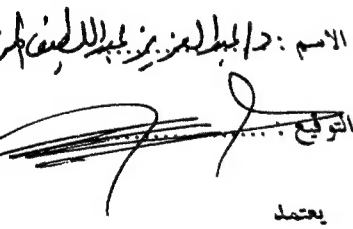 الاسم : د/ عبدالعزيز عبداللطيف
التوقيع :
يعتمد